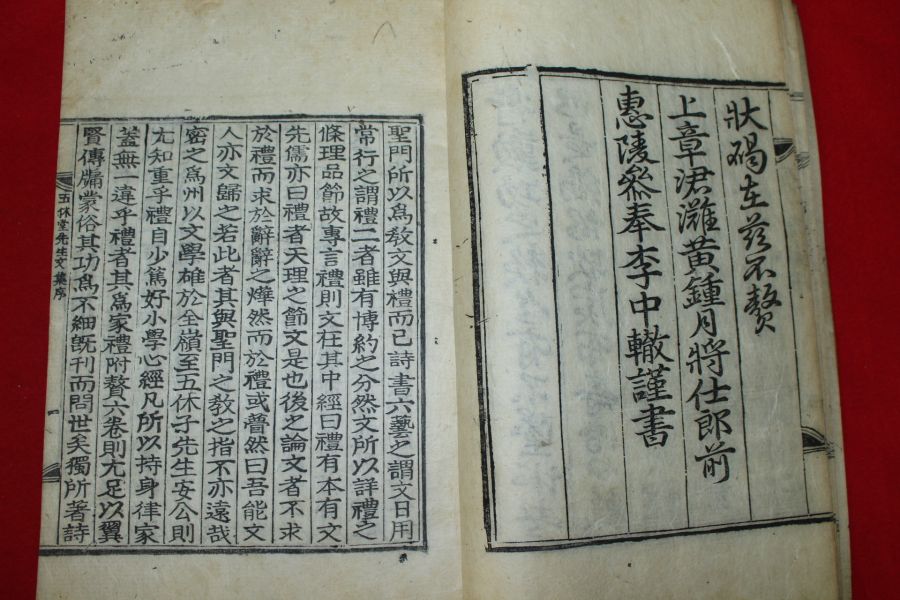 狀碣在玆不贅
上章涒灘黃鍾月將仕郎前
惠陵叅奉李中轍謹書
聖門所以爲敎文與禮而已詩書六藝之謂文日用
常行之謂禮二者雖有博約之分然文所以詳禮之
條理品節故專言禮則文在其中經曰禮有本有文
先儒亦曰禮者天理之節文是也後之論文者不求
於禮而求於辭辭之燁然而於禮或瞢然曰吾能文
人亦文歸之若此者其與聖門之敎之指不亦遠哉
密之爲州以文學雄於全嶺至五休子先生安公則
尢知重乎禮自少篤好小學心經凡所以持身律家
蓋無一違乎禮者其爲家禮附贅六卷則尢足以翼
賢傳牖蒙俗其功爲不細旣刊而問世矣獨所著詩
五休堂先生文集序